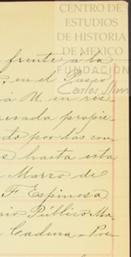 CENTRO DE
ESTUDIOS
DE HISTORIA
DE MEXICO
FUNDACIÓN
Carlos Slim
frente a la
en el Paseo
a N en rie
esada propie
do por las con
s hasta esta
Marzo de
F Espinosa
rio Público Ma
Cadena - Poe